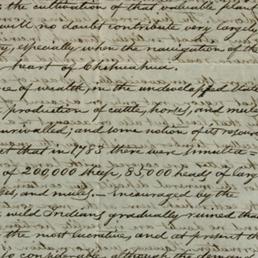 the cultivation of that valuable plant
will no doubt contribute very largely
especially when the navigation of the
heart of Chihuahua.
of wealth, in the undeveloped State
production of cattle, horses, and mules
unrivalled; and some notion of its resour
that in 1783 there were
of 200,000 sheep, 85,000 head of larg
and mules,— incouraged by the
wild Indians gradually ruined that
the most lucrative, and at present th
so considerable, although the demand